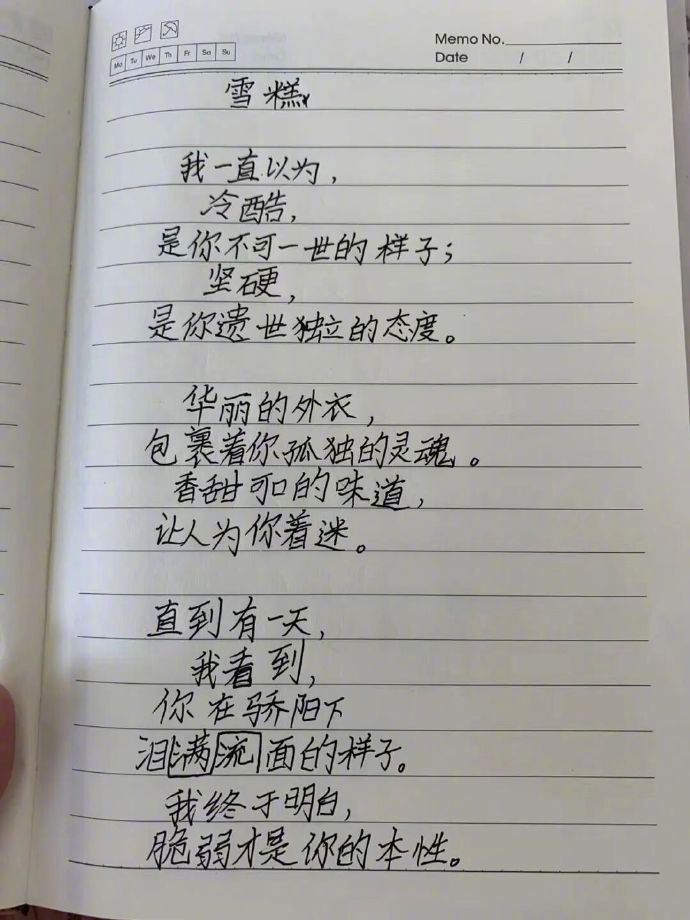 Memo No.
Mo Tu We Th Fr Sa Su
Date / /
雪糕
我一直以为，
冷酷，
是你不可一世的样子；
坚硬，
是你遗世独立的态度。
华丽的外衣，
包裹着你孤独的灵魂。
香甜可口的味道，
让人为你着迷。
直到有一天，
我看到，
你在骄阳下
泪满流面的样子。
我终于明白，
脆弱才是你的本性。